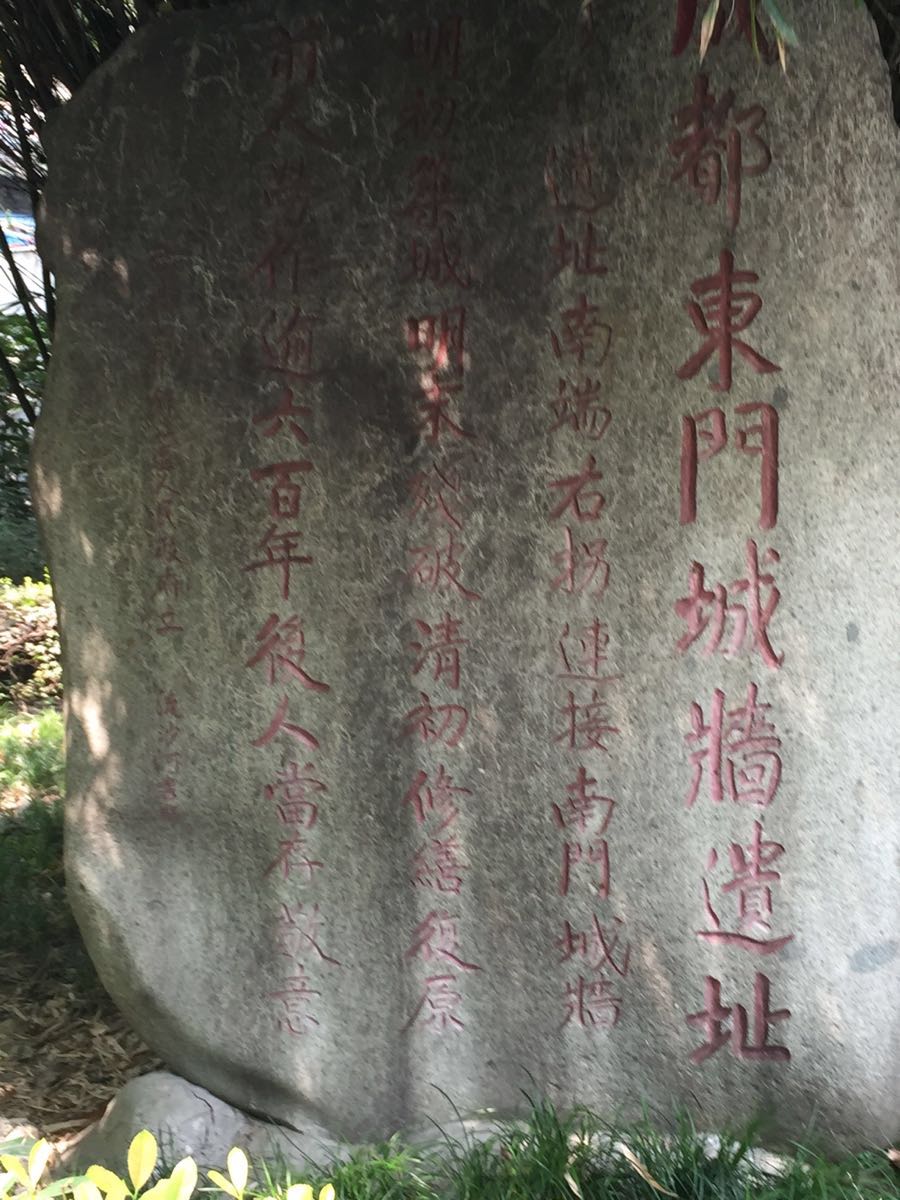 成都東門城牆遺址
遺址南端右拐連接南門城牆
明初築城明末殘破清初修繕復原
前人勞作逾六百年後人當存敬意
人民政府立 流沙河